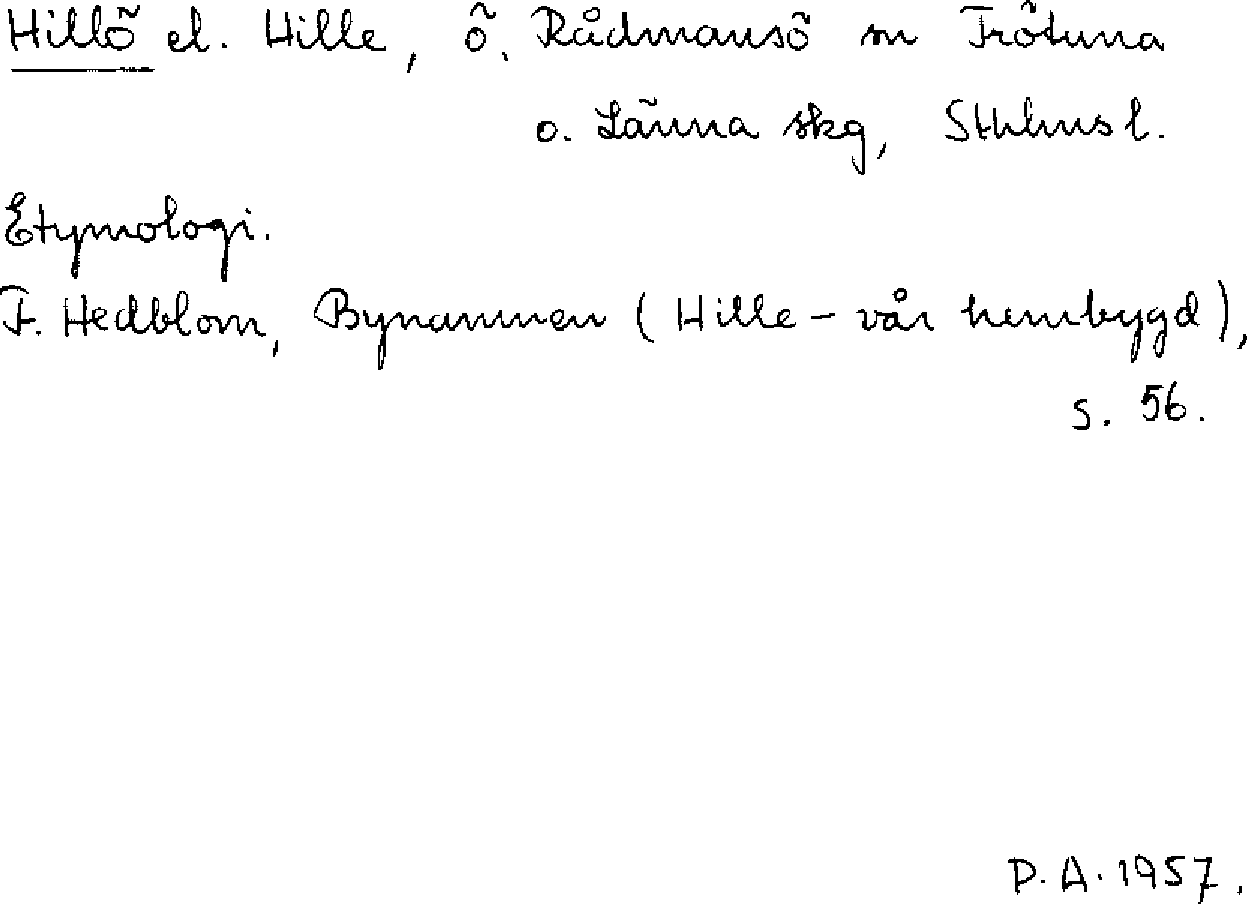 Hillö el. Hille, ö, Rådmansö sn Frötuna
o. Länna skg, Sthlms l.
Etymologi.
F. Hedblom, Bynamnen (Hille - vår hembygd),
s. 56.
D. A. 1957.